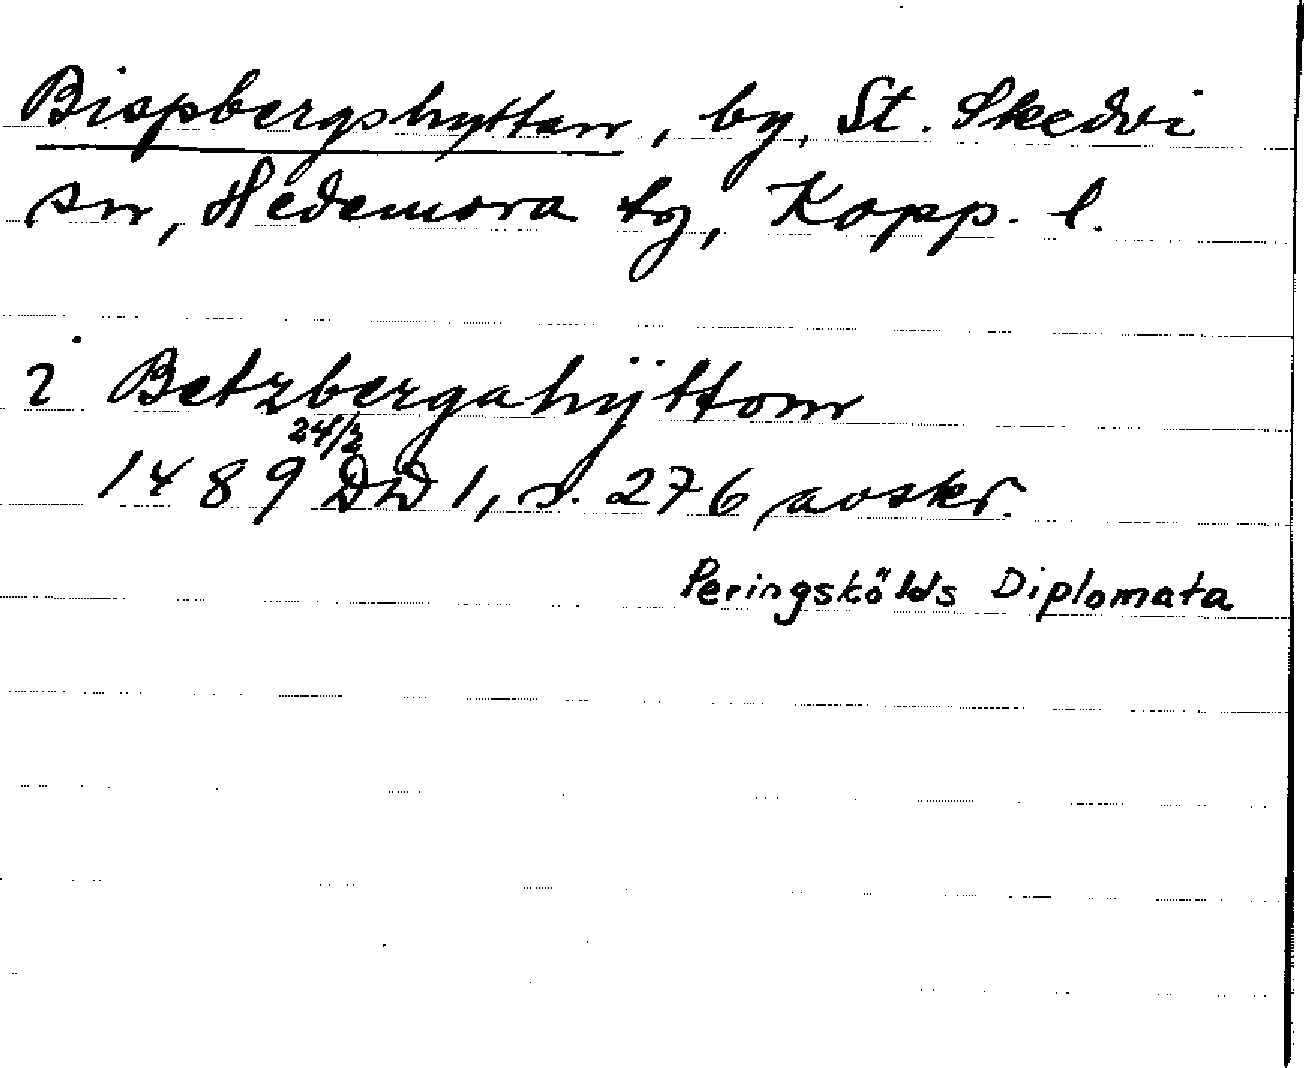 Bispbergshyttan, by, St. Skedvi
sn, Hedemora tg, Kopp. l.
i Betzbergahÿttom
24/2
1489 DD 1, s. 276 avskr.
Peringskölds Diplomata